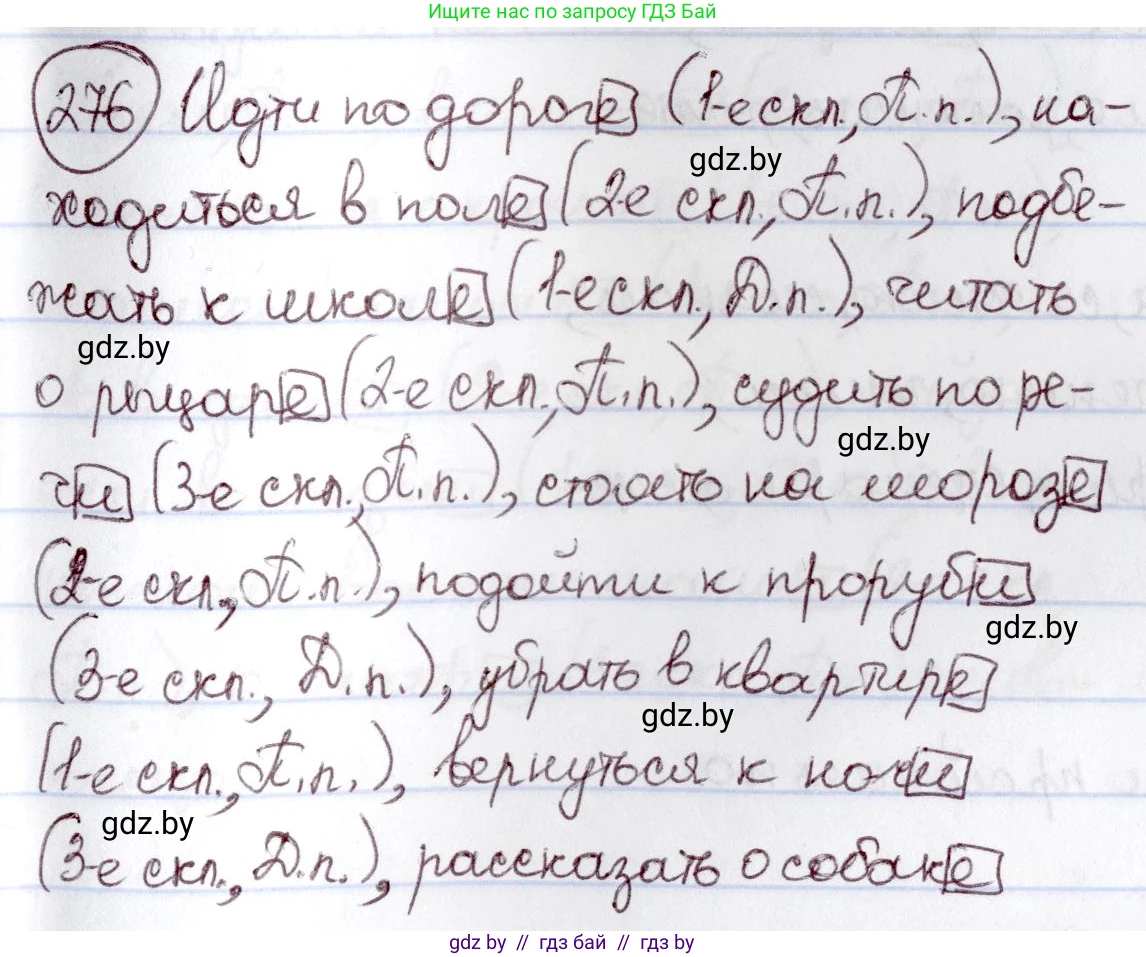 Ищите нас по запросу ГДЗ Бай
276 Идти по дороге (1-е скл., П.п.), на-
gdz.by
ходиться в поле (2-е скл., П.п.), подбе-
жать к школе (1-е скл., Д.п.), читать
gdz.by
о рыцаре (2-е скл., П.п.), судить по ре-
gdz.by
чи (3-е скл., П.п.), стоять на морозе
(2-е скл., П.п.), подойти к проруби
gdz.by
(3-е скл., Д.п.), убрать в квартире
gdz.by
(1-е скл., П.п.), вернуться к ночи
gdz.by
(3-е скл., Д.п.), рассказать о собаке
gdz by // гдз бай // гдз by